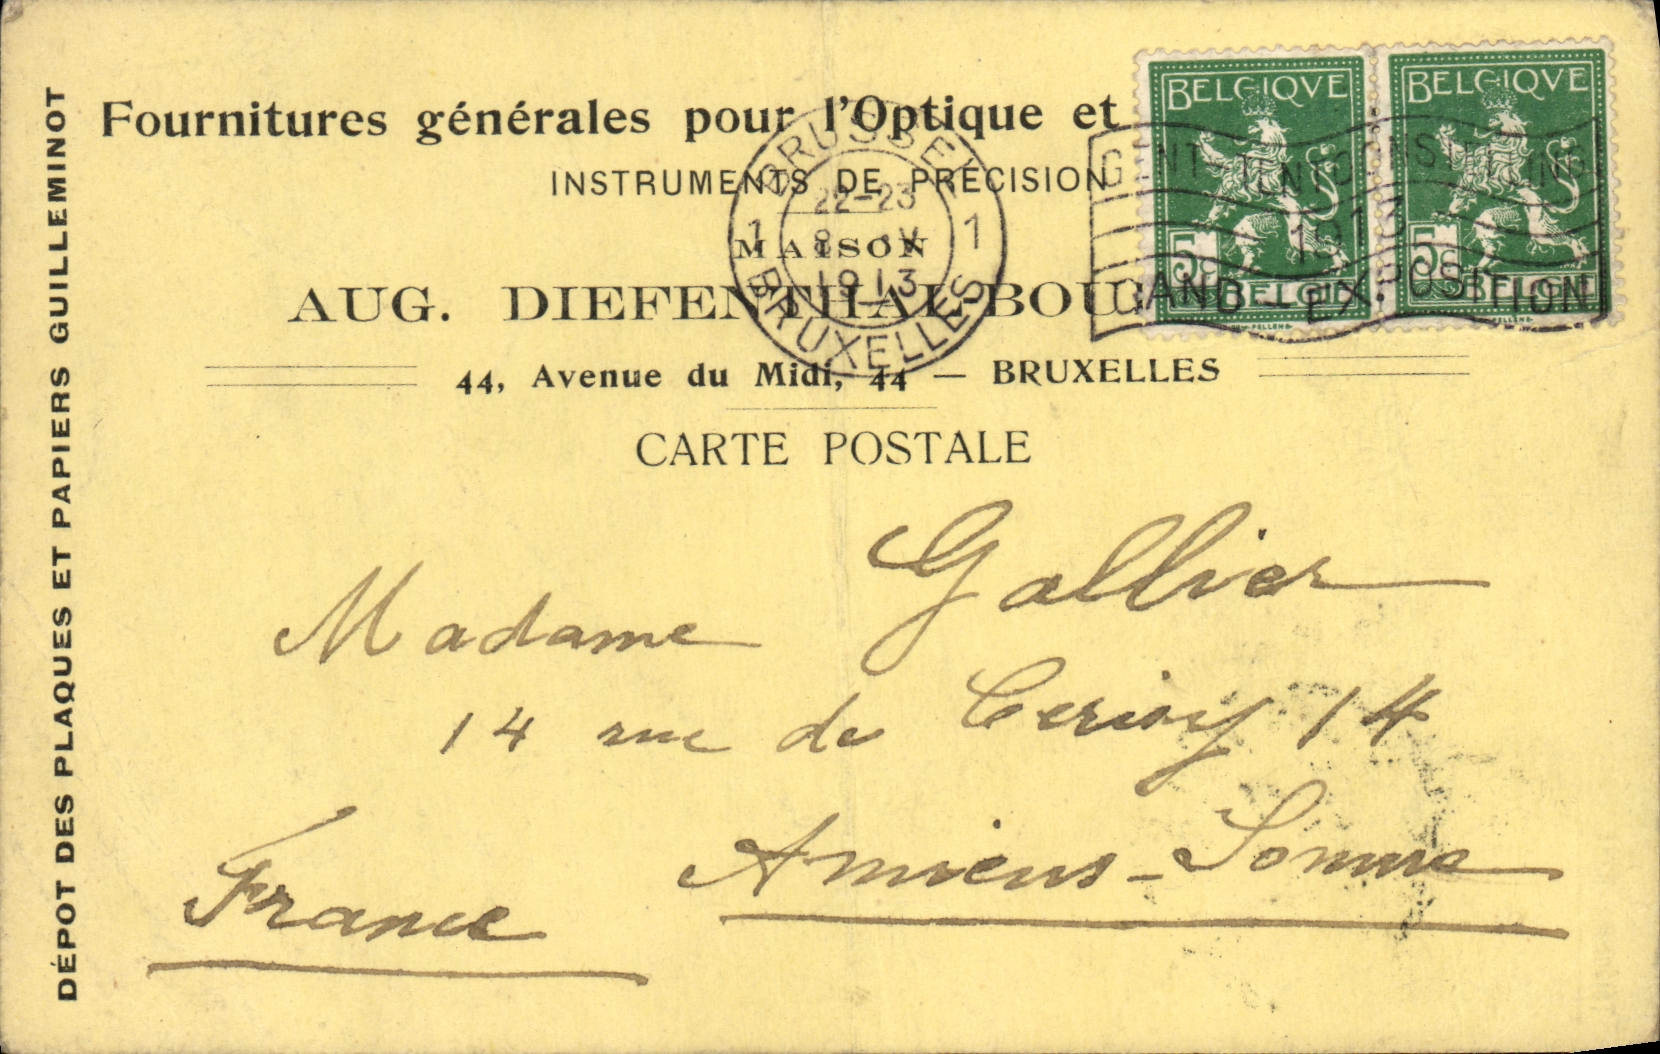 Fournitures générales pour l'Optique et
INSTRUMENTS DE PRÉCISION
MAISON
AUG. DIEFENTHAL-BOU
44, Avenue du Midi, 44 — BRUXELLES
CARTE POSTALE
DÉPOT DES PLAQUES ET PAPIERS GUILLEMINOT
BELGIQVE
5c
BELGIË
BELGIQVE
5c
BELGIË
BRUSSEL
1 22-23 1
8
1913
BRUXELLES
GENT TENTOONSTELLING
1913
GAND - EXPOSITION
Madame Gallier
14 rue de Cerisy 14
Amiens - Somme
France